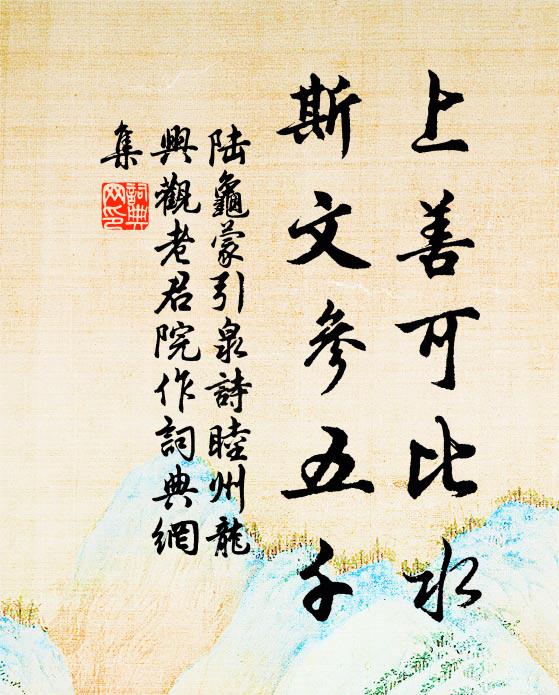 上善可比水
斯文參五千
陆龜蒙引泉詩睦州龍
興觀老君院作詞典網
集
詞典
网印